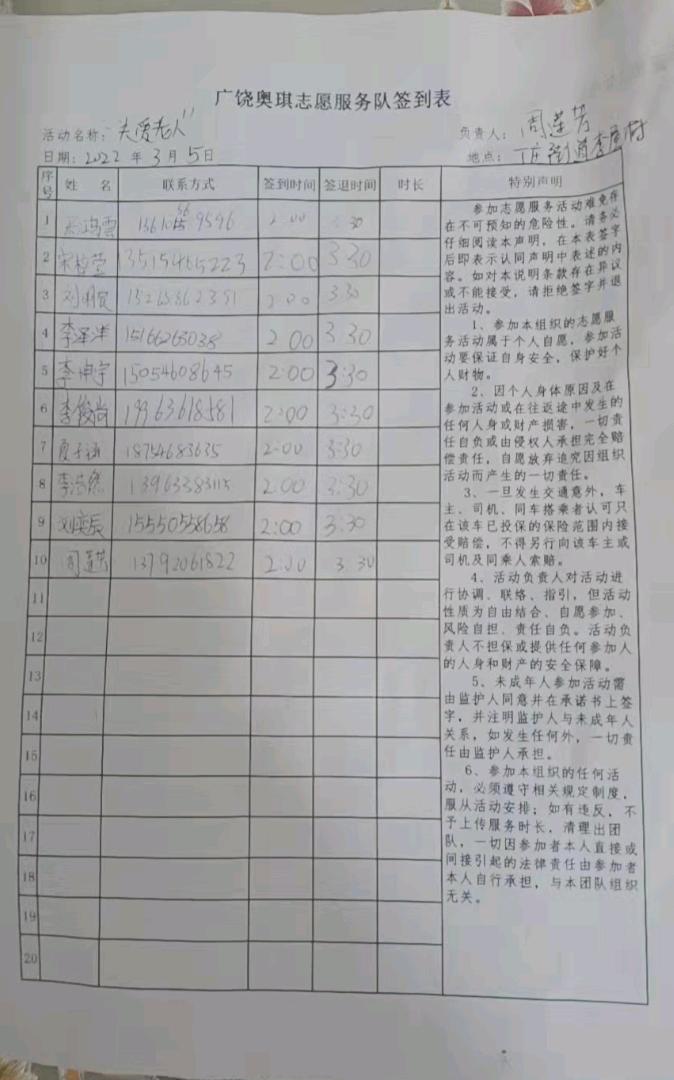 广饶奥琪志愿服务队签到表
活动名称："关爱老人" 负责人：周莲芳
日期：2022年3月5日 地点：丁庄街道李屋村
序号 姓名 联系方式 签到时间 签退时间 时长 特别声明
1 2:00 3:30
2 13515465223 2:00 3:30
3 13265862351 2:00 3:30
4 李泽洋 15166263038 2:00 3:30
5 李坤宇 15054608645 2:00 3:30
6 李俊尚 19963618581 2:00 3:30
7 夏子涵 18754683635 2:00 3:30
8 李浩然 2:00 3:30
9 刘奕辰 15550558658 2:00 3:30
10 周莲芳 13792061822 2:00 3:30
11
12
13
14
15
16
17
18
19
20
参加志愿服务活动难免存
在不可预知的危险性。请务必
仔细阅读本声明，在本表签字
后即表示认同声明中表述的内
容。如对本说明条款存在异议
或不能接受，请拒绝签字并退
出活动。
1、参加本组织的志愿服
务活动属于个人自愿，参加活
动要保证自身安全，保护好个
人财物。
2、因个人身体原因及在
参加活动或在往返途中发生的
任何人身或财产损害，一切责
任自负或由侵权人承担完全赔
偿责任，自愿放弃追究因组织
活动而产生的一切责任。
3、一旦发生交通意外，车
主、司机、同车搭乘者认可只
在该车已投保的保险范围内接
受赔偿，不得另行向该车主或
司机及同乘人索赔。
4、活动负责人对活动进
行协调、联络、指引，但活动
性质为自由结合、自愿参加、
风险自担、责任自负。活动负
责人不担保或提供任何参加人
的人身和财产的安全保障。
5、未成年人参加活动需
由监护人同意并在承诺书上签
字，并注明监护人与未成年人
关系，如发生任何外，一切责
任由监护人承担。
6、参加本组织的任何活
动，必须遵守相关规定制度，
服从活动安排；如有违反，不
予上传服务时长，清理出团
队，一切因参加者本人直接或
间接引起的法律责任由参加者
本人自行承担，与本团队组织
无关。